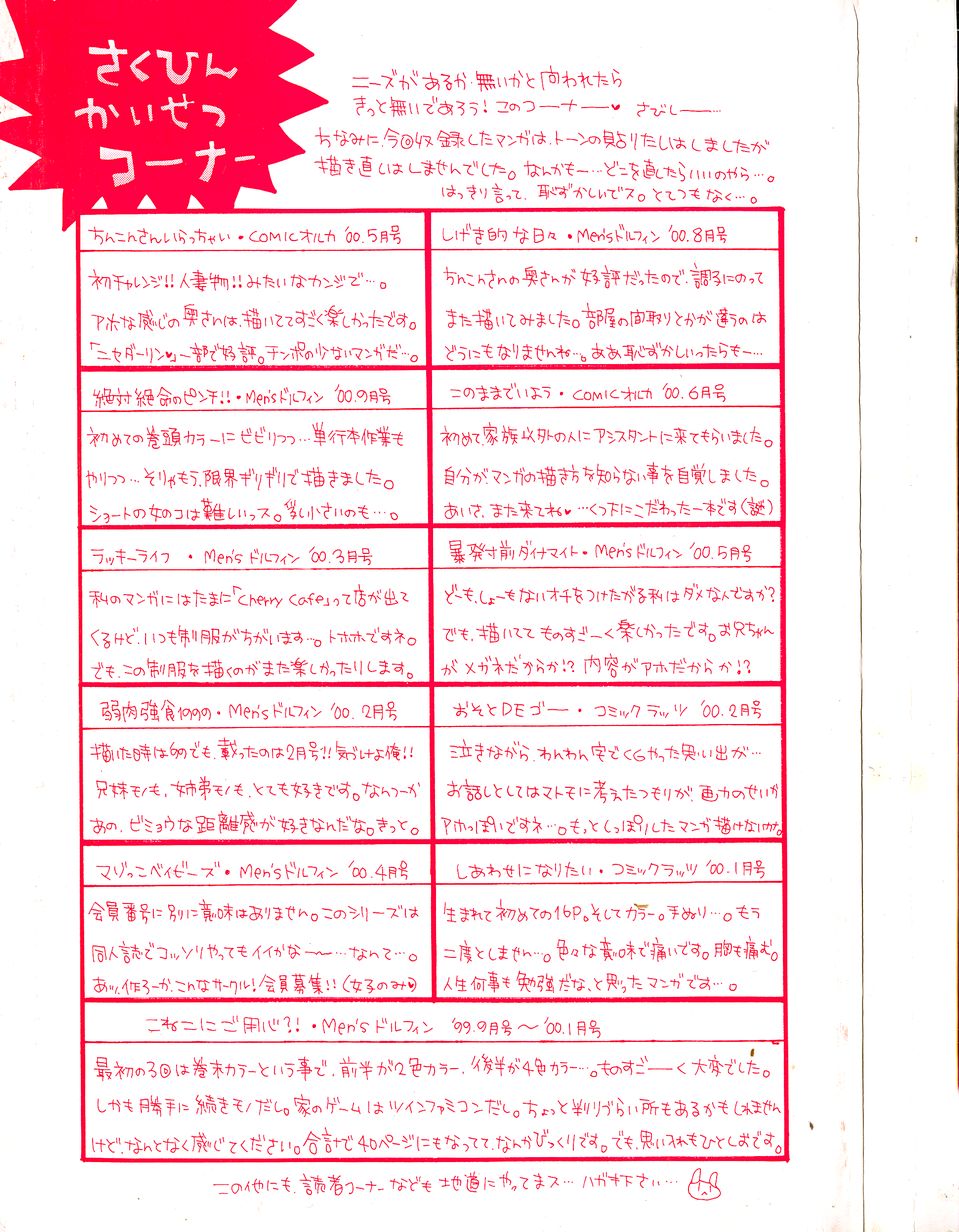 さくひん
かいせつ
コーナー
ニーズがあるか無いかと問われたら
きっと無いであろう!このコーナー♥ さびしー……
ちなみに、今回収録したマンガは、トーンの貼りたしはしましたが
描き直しはしませんでした。なんかもー…どこを直したらいいのやら…。
はっきり言って、恥ずかしいでス。とてつもなく…。
ちんこんさんいらっちゃい・COMICオルカ '00.5月号
初チャレンジ!!人妻物!!みたいなカンジで…。
アホな感じの奥さんは、描いててすごく楽しかったです。
「ニセダーリン♥」一部で好評。チンポの少ないマンガだ…。
しげき的な日々・Men'sドルフィン '00.8月号
ちんこんさんの奥さんが好評だったので、調子にのって
また描いてみました。部屋の間取りとかが違うのは
どうにもなりませんね…。ああ恥ずかしいったらもー…
絶対絶命のピンチ!!・Men'sドルフィン '00.9月号
初めての巻頭カラーにビビりつつ…単行本作業も
やりつつ…そりゃもう、限界ギリギリで描きました。
ショートの女のコは難しいっス。乳小さいのも…。
このままでいよう・COMICオルカ '00.6月号
初めて、家族以外の人にアシスタントに来てもらいました。
自分がマンガの描き方を知らない事を自覚しました。
あいさ、また来てね♥…くつ下にこだわった一本です(謎)
ラッキーライフ ・Men's ドルフィン '00.3月号
私のマンガにはたまに「Cherry Cafe」って店が出て
くるけど、いつも制服がちがいます…。トホホですネ。
でも、この制服を描くのがまた楽しかったりします。
暴発寸前ダイナマイト・Men'sドルフィン '00.5月号
どーも、しょーもないオチをつけたがる私はダメなんですか?
でも、描いてて ものすごーく楽しかったです。お兄ちゃん
がメガネだからか!?内容がアホだからか!?
弱肉強食1999・Men'sドルフィン '00.2月号
描いた時は'99でも、載ったのは2月号!!気づけよ俺!!
兄妹モノも、姉弟モノも、とても好きです。なんつーか
あの、ビミョウな距離感が好きなんだな。きっと。
おそとDEゴー・コミックラッツ '00.2月号
泣きながら、わんわん宅でCGやった思い出が…
お話しとしてはマトモに考えたつもりが、画力のせいか
アホっぽいですネ…。もっとしっぽりしたマンガ描けないのか。
マゾっこベイビーズ・Men'sドルフィン '00.4月号
会員番号に別に意味はありません。このシリーズは
同人誌でコッソリやってもイイかな〜…なんて…。
あっ、作ろーか、こんなサークル!会員募集!!(女子のみ♥)
しあわせになりたい・コミックラッツ '00.1月号
生まれて初めての16P。そしてカラー。手ぬり…。もう
二度としません…。色々な意味で痛いです。胸も痛む。
人生何事も勉強だな、と思ったマンガです…。
こねこにご用心?!・Men'sドルフィン '99.9月号〜'00.1月号
最初の3回は巻末カラーという事で、前半が2色カラー、後半が4色カラー…。ものすごーく大変でした。
しかも勝手に続きモノだし。家のゲームはツインファミコンだし。ちょっと判りづらい所もあるかもしれません
けど、なんとなく感じてください。合計で40ページにもなってて、なんかびっくりです。でも、思い入れもひとしおです。
この他にも、読者コーナーなども地道にやってまス…ハガキ下さい…